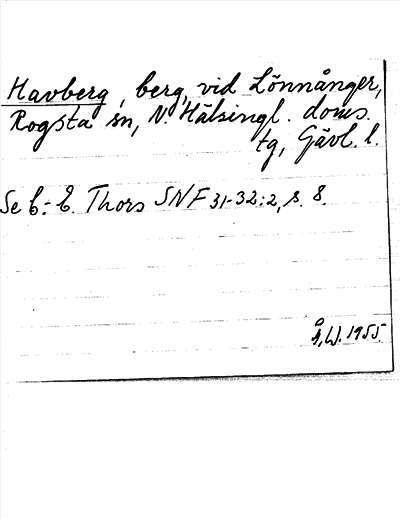 Havberg, berg, vid Lönnånger,
Rogsta sn, N. Hälsingl. doms.
tg, Gävl. l.
Se C.-E. Thors SNF 31-32:2, s. 8.
Å.W. 1955